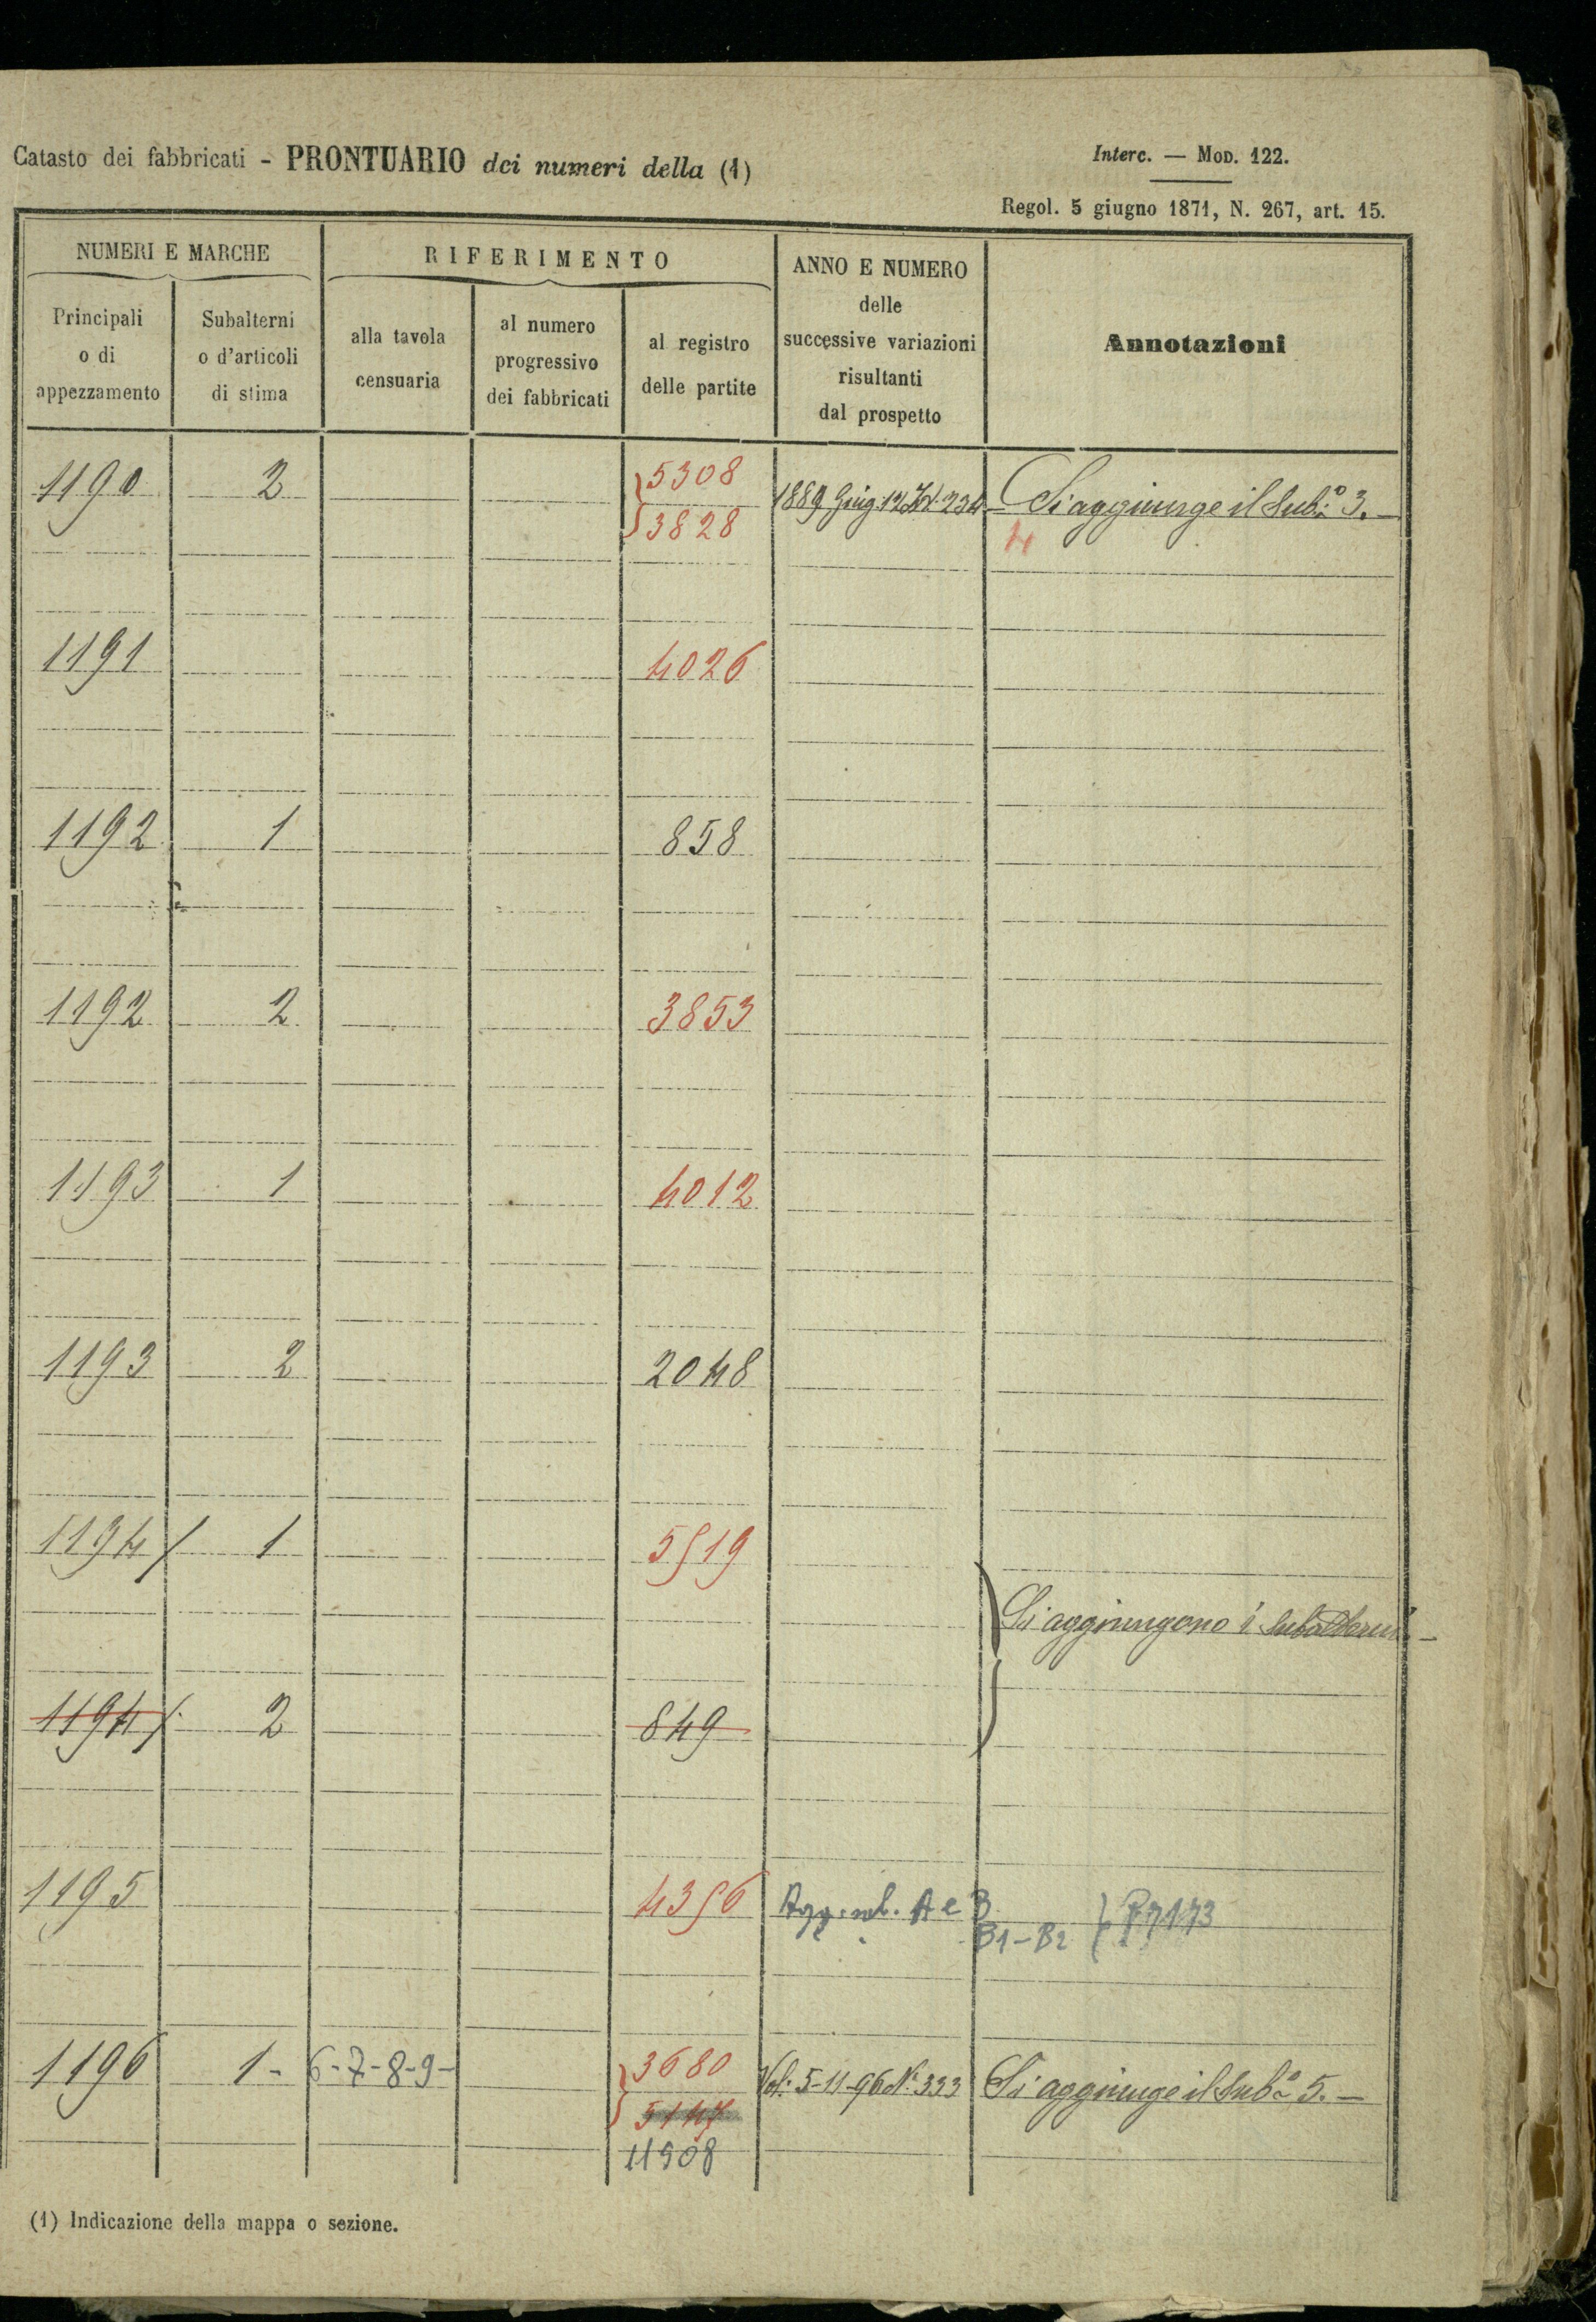 Catasto dei fabbricati - PRONTUARIO dei numeri della (1)
Interc. — Mod. 122.
Regol. 5 giugno 1871, N. 267, art. 15.
NUMERI E MARCHE
RIFERIMENTO
ANNO E NUMERO
delle
successive variazioni
risultanti
dal prospetto
Annotazioni
Principali
o di
appezzamento
Subalterni
o d'articoli
di stima
alla tavola
censuaria
al numero
progressivo
dei fabbricati
al registro
delle partite
1190 2 5308 1889 Giug. 12 N. 234 Si aggiunge il Sub.º 3. —
3828 4
1191 4026
1192 1 858
1192 2 3853
1193 1 4012
1193 2 2048
1194 / 1 5519
Si aggiungono i Subalterni. —
1194 / 2 849
1195 4356 Agg. sub. A e B
B1 - B2 P. 7173
1196 1 - 6-7-8-9- 3680 Vol. 5-11-96 N. 333 Si aggiunge il Sub.º 5. —
5147
11908
(1) Indicazione della mappa o sezione.